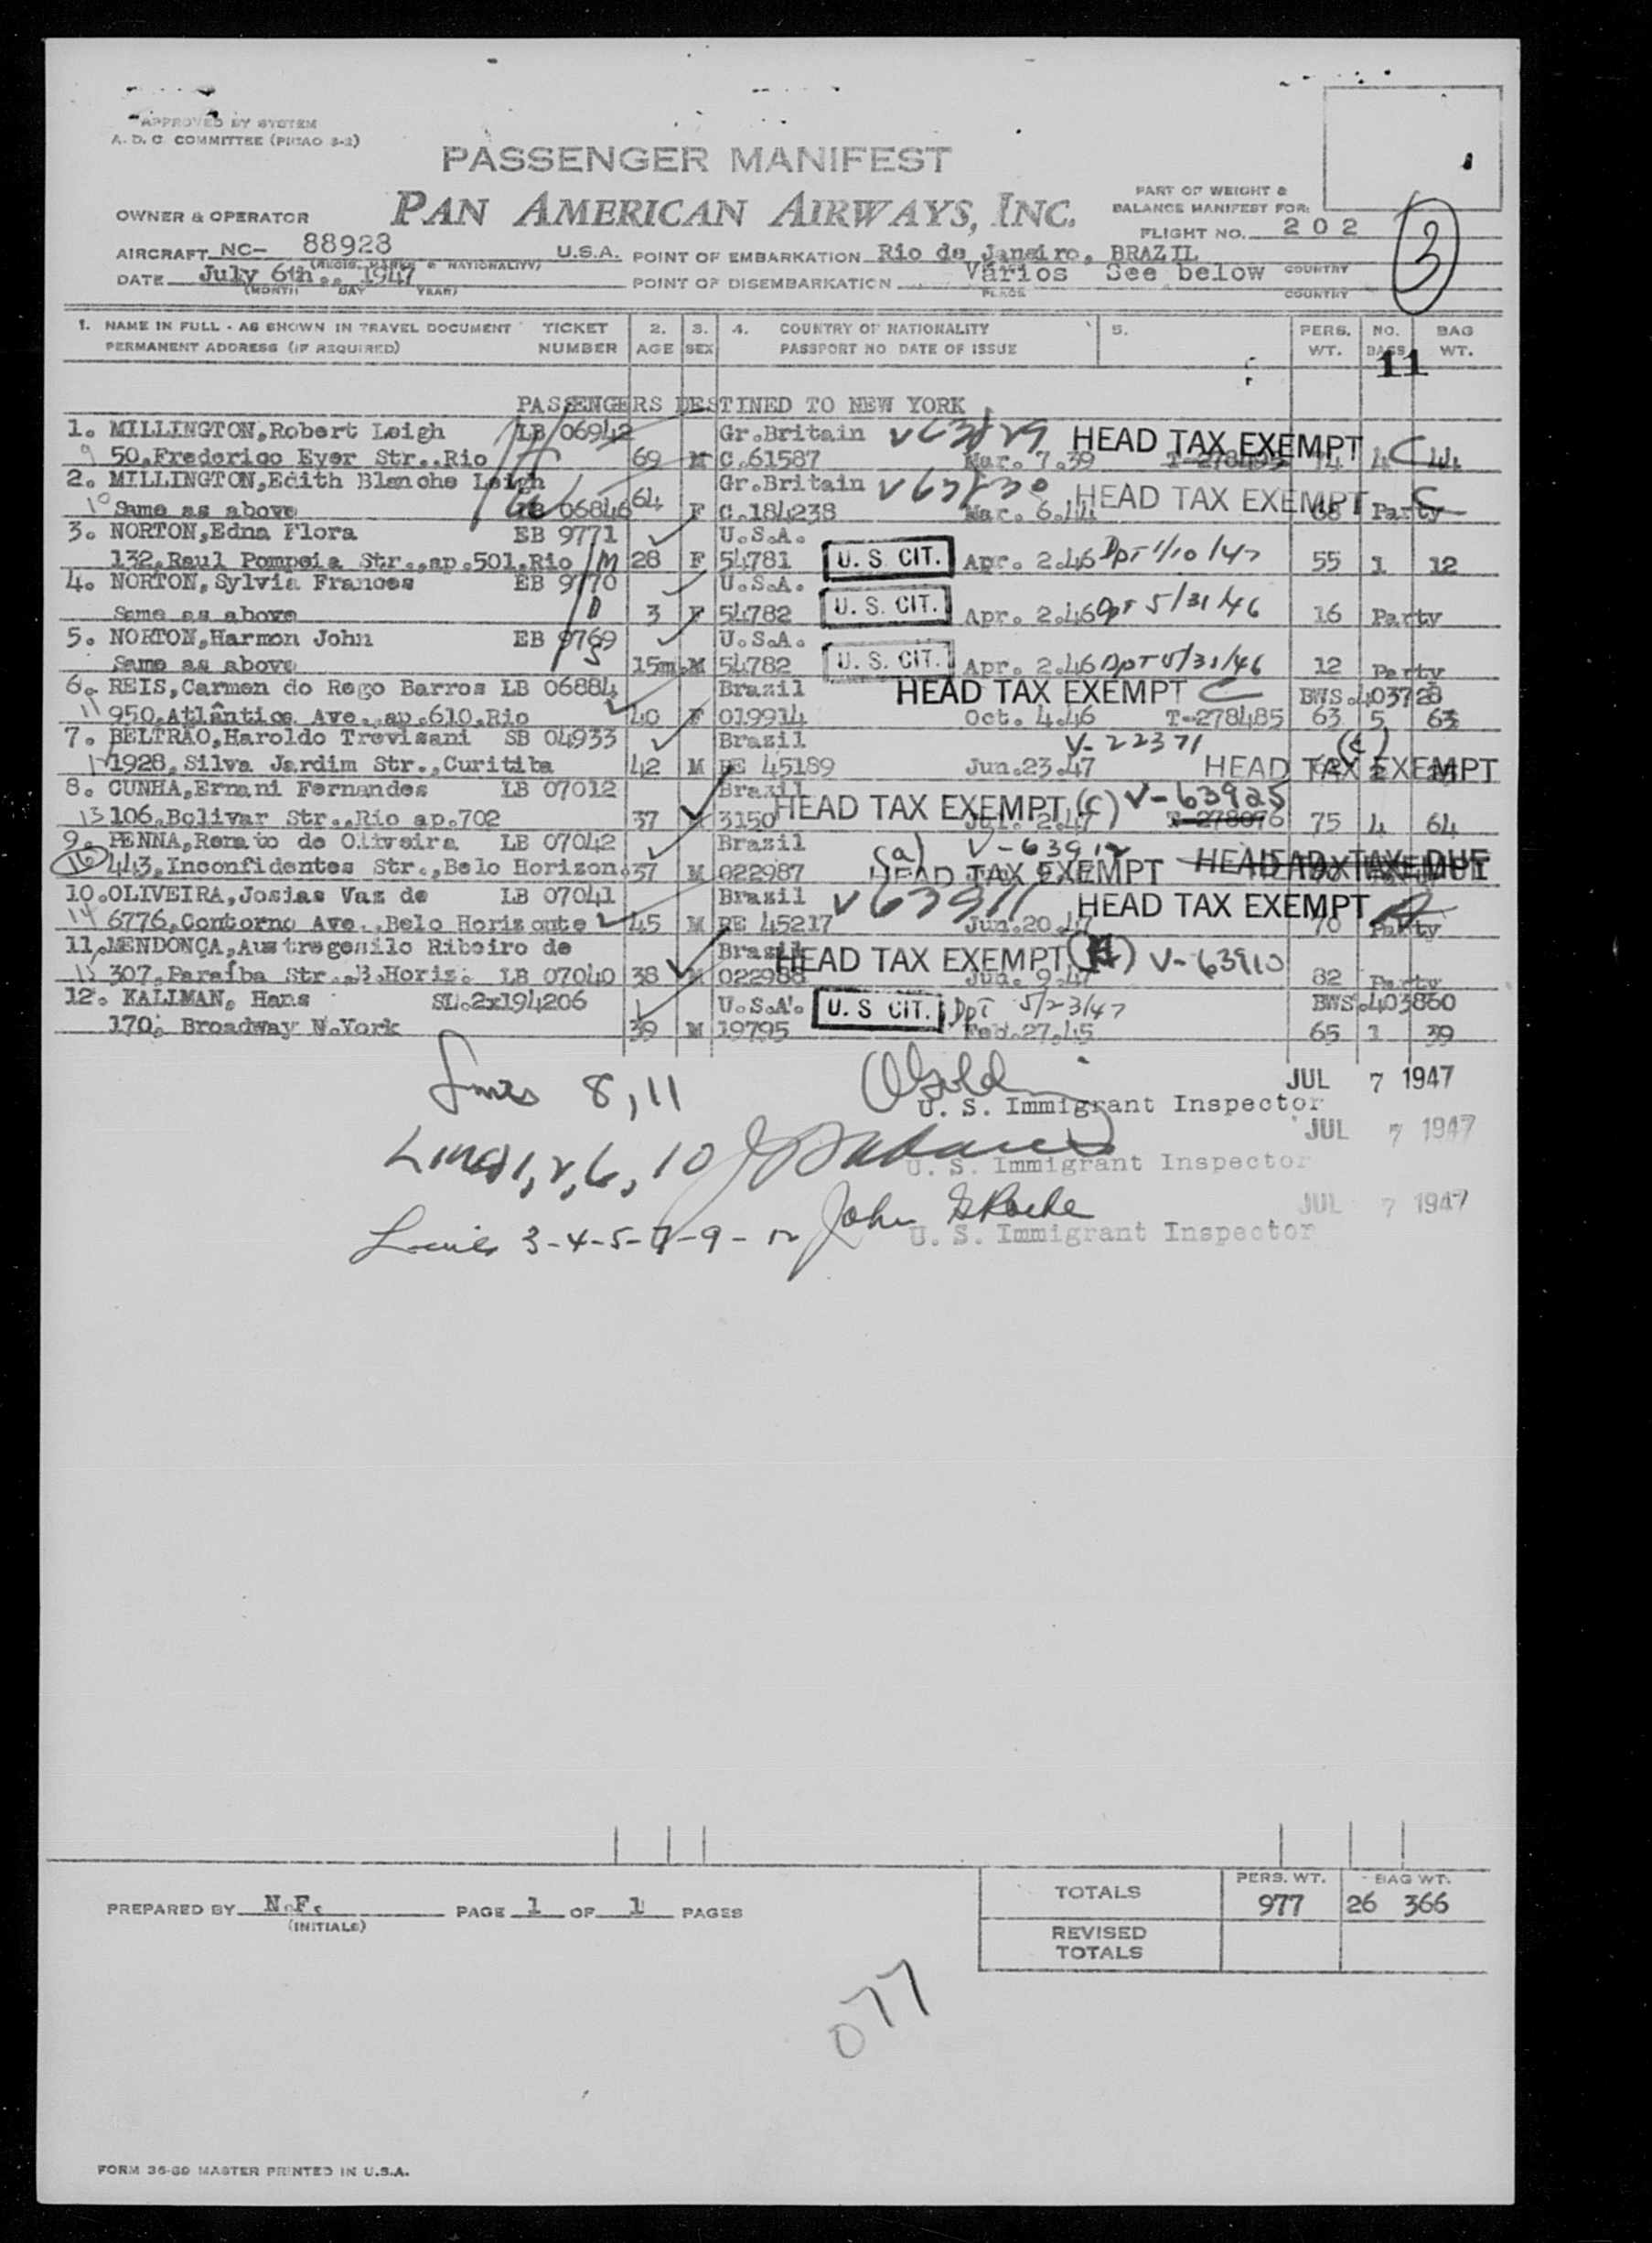 APPROVED BY SYSTEM
A. D. C. COMMITTEE
PASSENGER MANIFEST
PAN AMERICAN AIRWAYS, INC.
PART OF WEIGHT &
BALANCE MANIFEST FOR:
OWNER & OPERATOR
FLIGHT NO. 202
3
AIRCRAFT NC- 88923 U.S.A. POINT OF EMBARKATION Rio de Janeiro, BRAZIL
DATE July 6th., 1947 POINT OF DISEMBARKATION Varios See below COUNTRY
(MONTH DAY YEAR) PLACE COUNTRY
1. NAME IN FULL - AS SHOWN IN TRAVEL DOCUMENT TICKET 2. 3. 4. COUNTRY OF NATIONALITY 5. PERS. NO. BAG
PERMANENT ADDRESS (IF REQUIRED) NUMBER AGE SEX PASSPORT NO DATE OF ISSUE WT. BAGS WT.
11
PASSENGERS DESTINED TO NEW YORK
1. MILLINGTON,Robert Leigh LB 06942 Gr.Britain V63829 HEAD TAX EXEMPT
9 50,Frederico Eyer Str.,Rio 69 M C.61587 Mar. 7.39 4 C 44
2. MILLINGTON,Edith Blanche Leigh Gr.Britain V63830 HEAD TAX EXEMPT C
10 Same as above LB 06846 64 F C.184238 Mar. 6.44 68 Party
3. NORTON,Edna Flora EB 9771 U.S.A.
132,Raul Pompeia Str.,ap.501,Rio M 28 F 54781 U. S. CIT. Apr. 2.46 Dpt 1/10/47 55 1 12
4. NORTON,Sylvia Frances EB 9770 U.S.A.
Same as above D 3 F 54782 U. S. CIT. Apr. 2.46 Dpt 5/31/46 16 Party
5. NORTON,Harmon John EB 9769 U.S.A.
Same as above S 15m. M 54782 U. S. CIT. Apr. 2.46 Dpt 5/31/46 12 Party
6. REIS,Carmen do Rego Barros LB 06884 Brazil HEAD TAX EXEMPT C BWS.403728
11 950,Atlântica Ave.,ap.610,Rio 40 F 019914 Oct. 4.46 T-278485 63 5 63
7. BELTRÃO,Haroldo Trevisani SB 04933 Brazil V-22371 (c)
12 1928,Silva Jardim Str.,Curitiba 42 M PE 45189 Jun.23.47 HEAD TAX EXEMPT
8. CUNHA,Ernani Fernandes LB 07012 Brazil HEAD TAX EXEMPT (c) V-63925
13 106,Bolivar Str.,Rio ap.702 37 M 3150 Jul. 2.47 T-278076 75 4 64
9. PENNA,Renato de Oliveira LB 07042 Brazil (a) V-63912
16 443,Inconfidentes Str.,Belo Horizon. 37 M 022987 HEAD TAX EXEMPT
10.OLIVEIRA,Josias Vaz de LB 07041 Brazil V63911 HEAD TAX EXEMPT A
14 6776,Contorno Ave.,Belo Horizonte 45 M PE 45217 Jun.20.47 70 Party
11.MENDONÇA,Austregesilo Ribeiro de Brazil HEAD TAX EXEMPT V-63910
15 307,Paraíba Str.,B.Horiz. LB 07040 38 M 022988 Jun. 9.47 82 Party
12. KALLMAN, Hans SL.2x194206 U.S.A. U. S CIT. Dpt 5/23/47 BWS.403860
170, Broadway N.York 39 M 19795 Feb.27.45 65 1 39
Lines 8,11 JUL 7 1947
U. S. Immigrant Inspector
JUL 7 1947
Lines 1,2,6,10
U. S. Immigrant Inspector
JUL 7 1947
Lines 3-4-5-7-9-12 John
U. S. Immigrant Inspector
TOTALS PERS. WT. BAG WT.
977 26 366
PREPARED BY N.F. PAGE 1 OF 1 PAGES
(INITIALS)
REVISED
TOTALS
077
FORM 36-89 MASTER PRINTED IN U.S.A.